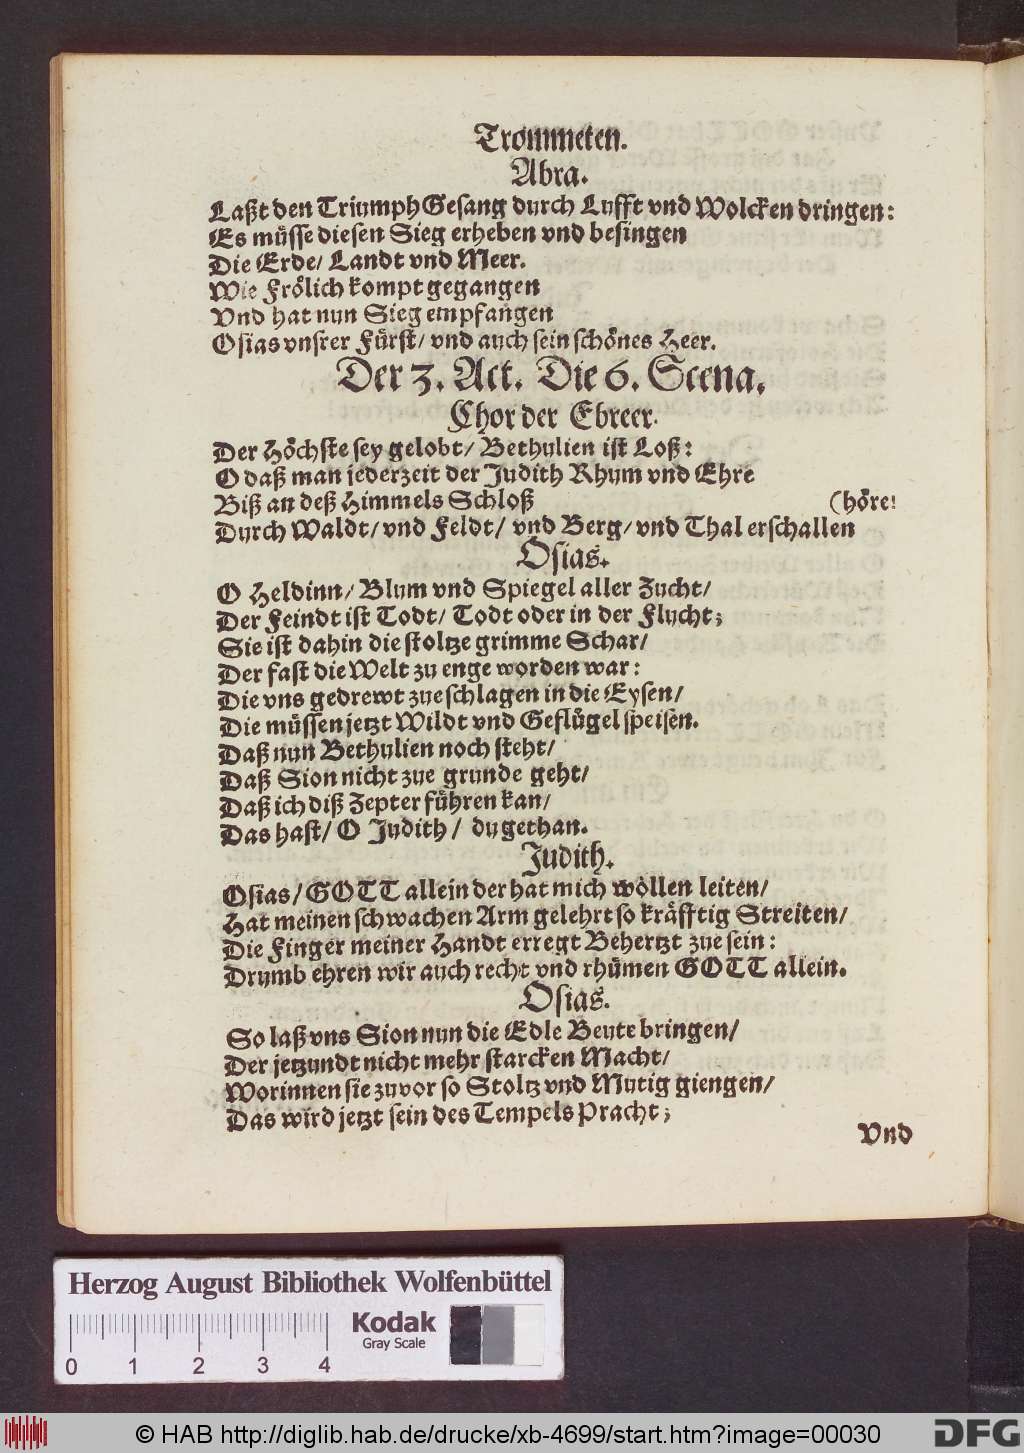 Trommeten.
Abra.
Laßt den TriumphGesang durch Lufft vnd Wolcken dringen:
Es müsse diesen Sieg erheben vnd besingen
Die Erde/ Landt vnd Meer.
Wie Frölich kompt gegangen
Vnd hat nun Sieg empfangen
Osias vnsrer Fürst/ vnd auch sein schönes Heer.
Der 3. Act. Die 6. Scena.
Chor der Ebreer.
Der Höchste sey gelobt/ Bethulien ist Loß:
O daß man jederzeit der Judith Rhum vnd Ehre
Biß an deß Himmels Schloß (höre!
Durch Waldt/ vnd Feldt/ vnd Berg/ vnd Thal erschallen
Osias.
O Heldinn/ Blum vnd Spiegel aller Zucht/
Der Feindt ist Todt/ Todt oder in der Flucht;
Sie ist dahin die stoltze grimme Schar/
Der fast die Welt zu enge worden war:
Die vns gedrewt zue schlagen in die Eysen/
Die müssen jetzt Wildt vnd Geflügel speisen.
Daß nun Bethulien noch steht/
Daß Sion nicht zue grunde geht/
Daß ich diß Zepter führen kan/
Das hast/ O Judith/ du gethan.
Judith.
Osias/ GOTT allein der hat mich wöllen leiten/
Hat meinen schwachen Arm gelehrt so kräfftig Streiten/
Die Finger meiner Handt erregt Behertzt zue sein:
Drumb ehren wir auch recht vnd rhümen GOTT allein.
Osias.
So laß vns Sion nun die Edle Beute bringen/
Der jetzundt nicht mehr starcken Macht/
Worinnen sie zuvor so Stoltz vnd Mutig giengen/
Das wird jetzt sein des Tempels Pracht;
Vnd
Herzog August Bibliothek Wolfenbüttel
Kodak
Gray Scale
0 1 2 3 4
© HAB http://diglib.hab.de/drucke/xb-4699/start.htm?image=00030
DFG